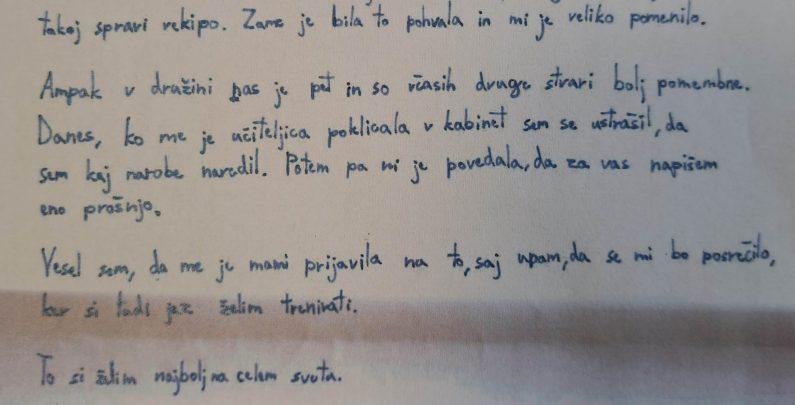 takoj spravi vekipo. Zame je bila to pohvala in mi je veliko pomenilo.
Ampak v družini nas je pet in so včasih druge stvari bolj pomembne.
Danes, ko me je učiteljica poklicala v kabinet sem se ustrašil, da
sem kaj narobe naredil. Potem pa mi je povedala, da za vas napišem
eno prošnjo.
Vesel sem, da me je mami prijavila na to, saj upam, da se mi bo posrečilo,
ker si tudi jaz želim trenirati.
To si želim najbolj na celem svetu.